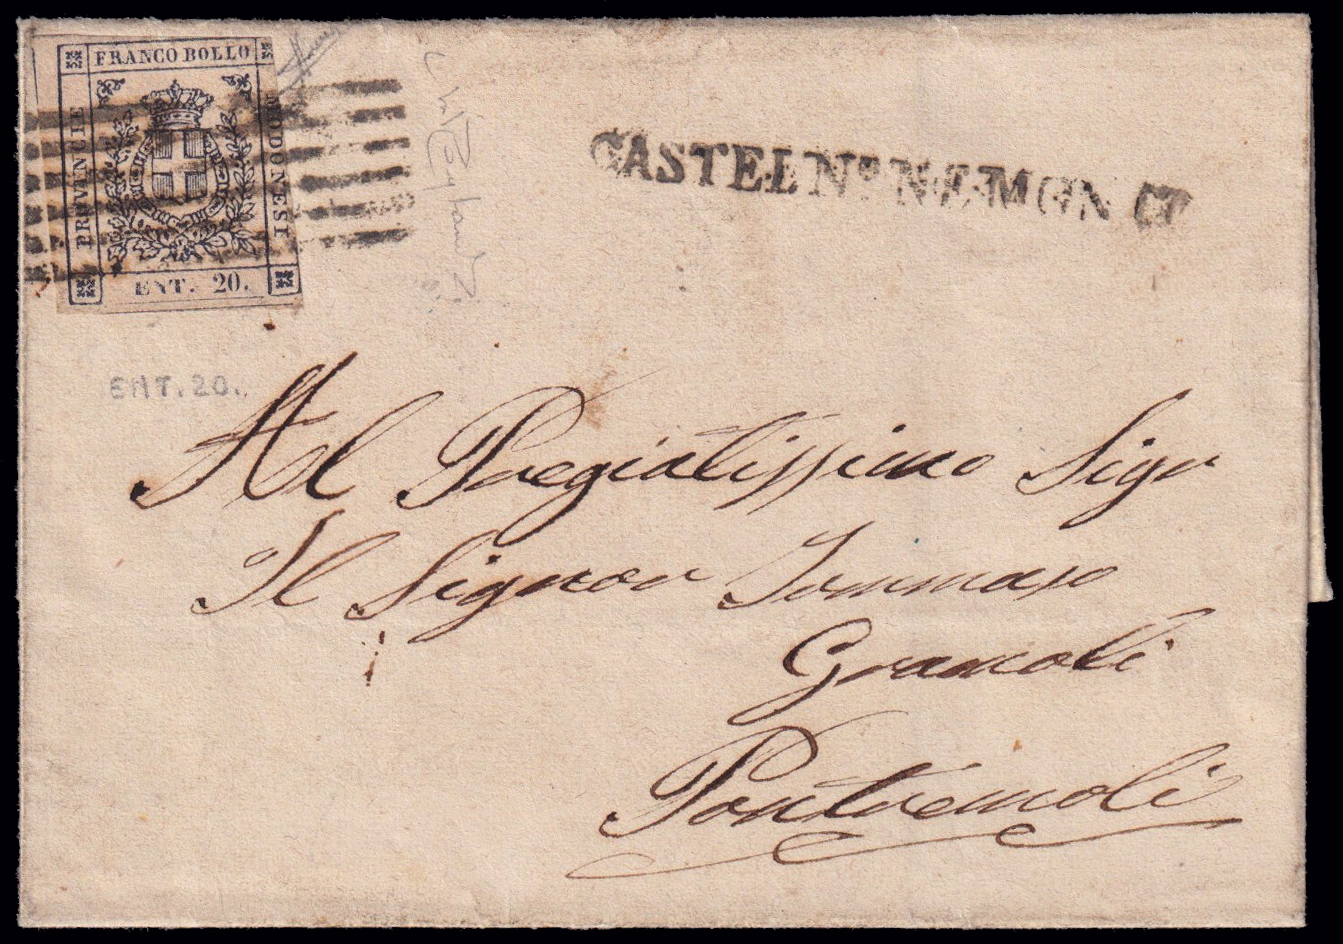 FRANCO BOLLO
PROVINCIE
MODONESI
ENT. 20.
CASTELNo NE MONTI
ENT. 20.
Al Pregiatissimo Sigr
Il Signor Tommaso
Gramoli
Pontremoli